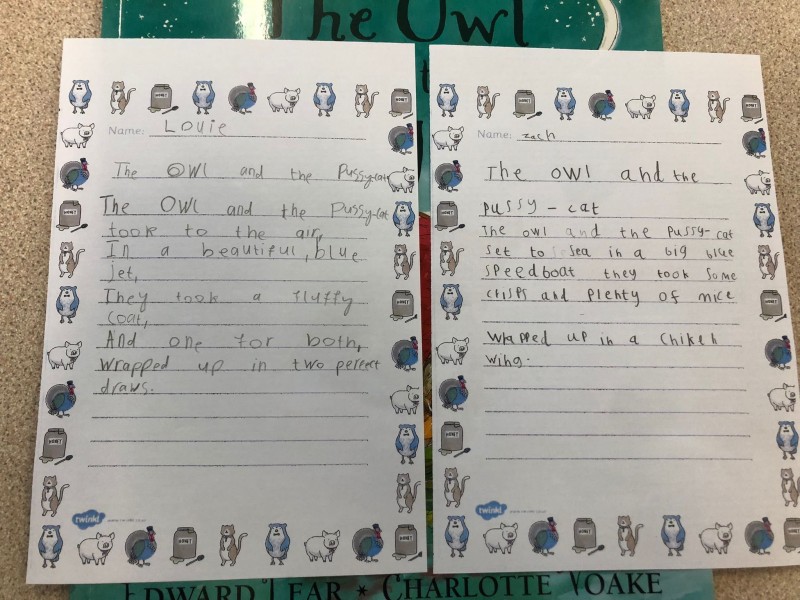 The Owl
Name: Louie
The Owl and the Pussy-cat
The Owl and the Pussy-cat
took to the air,
In a beautiful, blue
jet,
They took a fluffy
coat,
And one for both,
wrapped up in two
draws.
twinkl
Name: zach
The owl and the
pussy - cat
The owl and the pussy-cat
set to sea in a big blue
speedboat they took some
crisps and plenty of nice
wrapped up in a chiken
wing.
twinkl
HONEY
HONEY
HONEY
HONEY
HONEY
HONEY
HONEY
HONEY
HONEY
HONEY
EDWARD LEAR * CHARLOTTE VOAKE